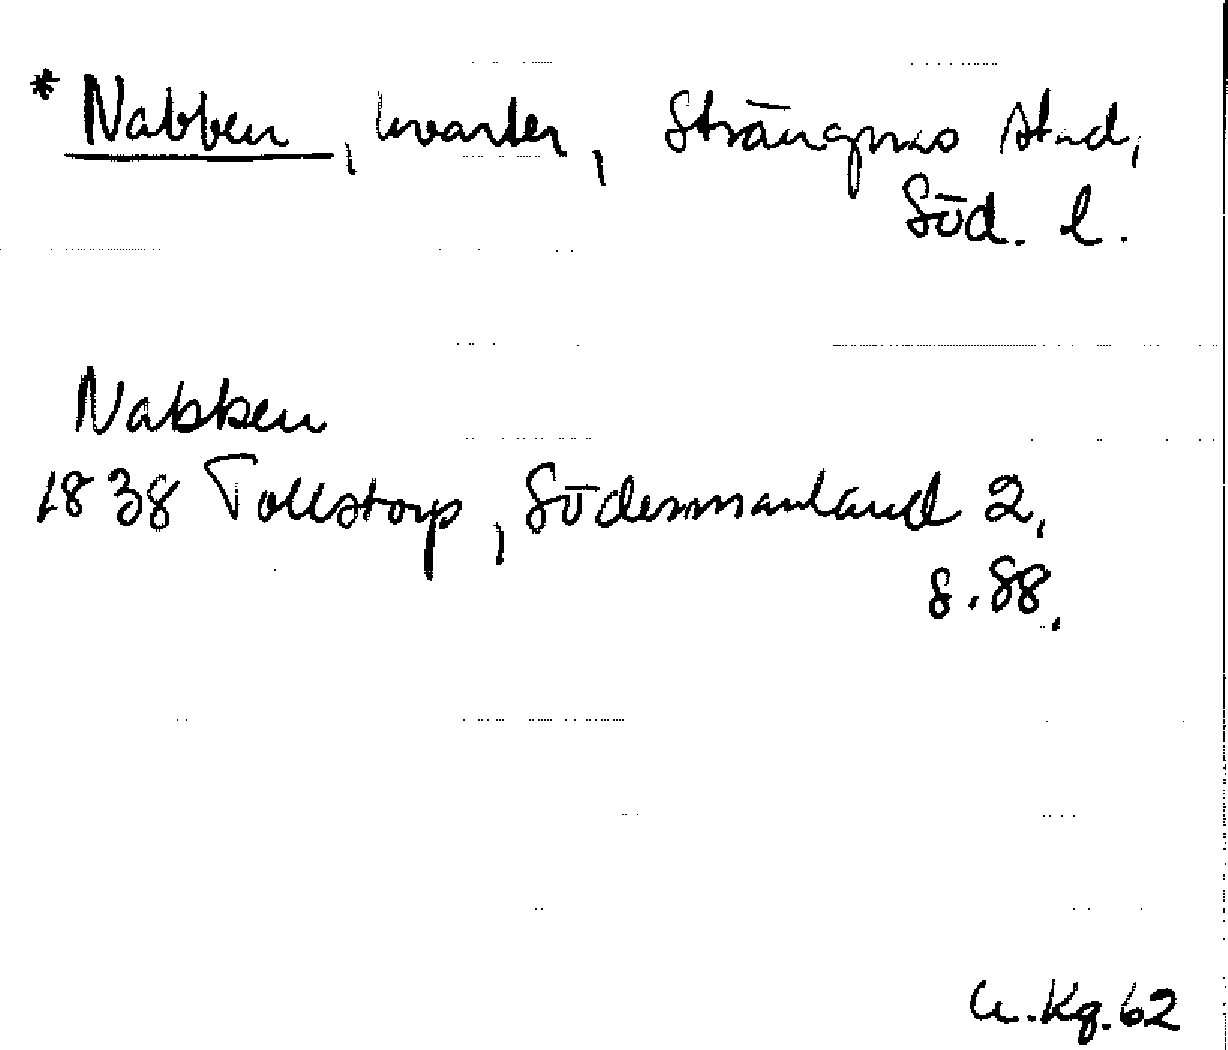 * Nabben, kvarter, Strängnäs stad,
Söd. l.
Nabben
1838 Tollstorp, Södermanland 2,
s. 88.
U. Kg. 62